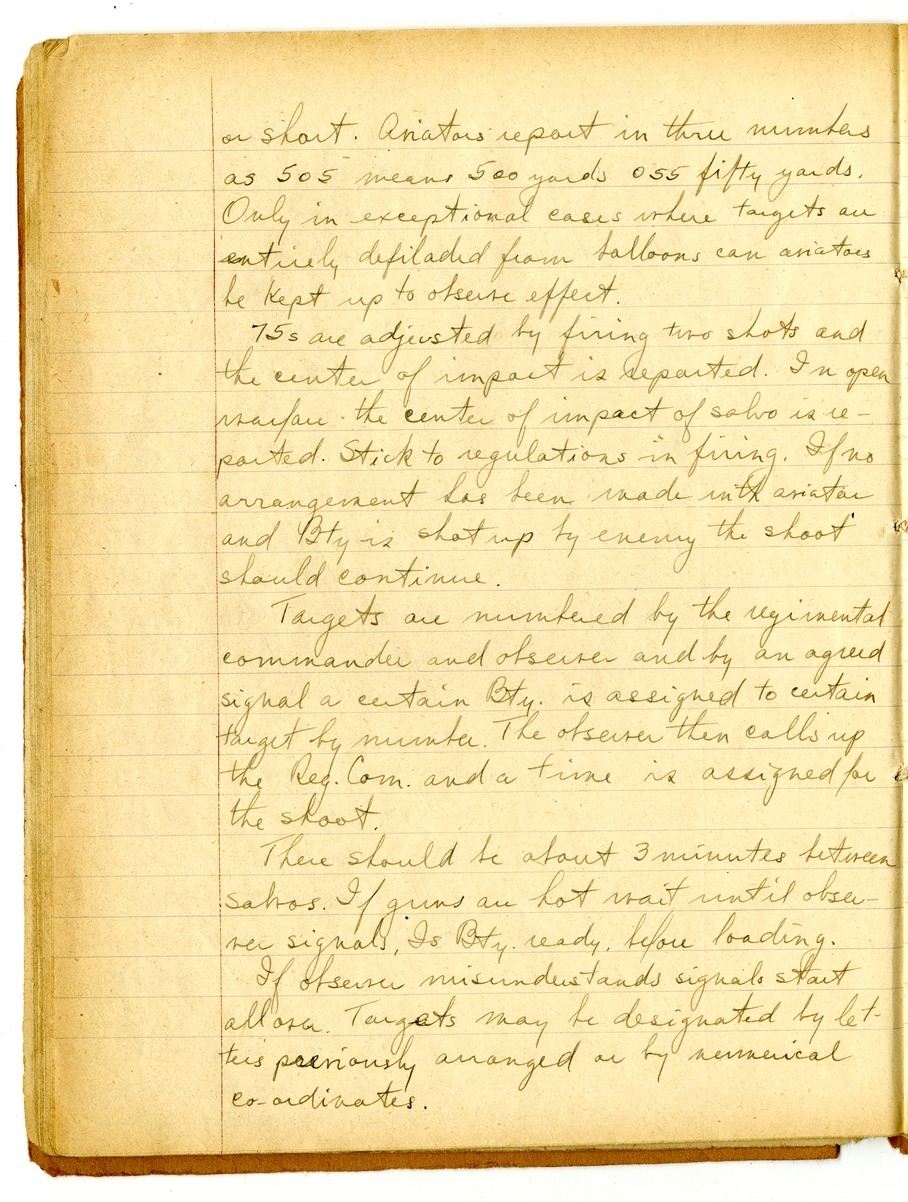 or short. Aviators report in three numbers
as 505 means 500 yards 055 fifty yards.
Only in exceptional cases where targets are
entirely defiladed from balloons can aviators
be kept up to observe effect.
75s are adjusted by firing two shots and
the center of impact is reported. In open
warfare the center of impact of salvo is re-
ported. Stick to regulations in firing. If no
arrangement has been made with aviator
and Bty is shot up by enemy the shoot
should continue.
Targets are numbered by the regimental
commander and observer and by an agreed
signal a certain Bty. is assigned to certain
target by number. The observer then calls up
the Reg. Com. and a time is assigned for
the shoot.
There should be about 3 minutes between
salvos. If guns are hot wait until obser-
ver signals, Is Bty. ready, before loading.
If observer misunderstands signals start
all over. Targets may be designated by let-
ters previously arranged or by numerical
co-ordinates.